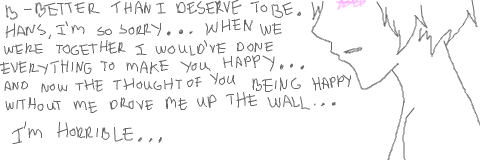 B-BETTER THAN I DESERVE TO BE.
HANS, I'M SO SORRY... WHEN WE
WERE TOGETHER I WOULD'VE DONE
EVERYTHING TO MAKE YOU HAPPY...
AND NOW THE THOUGHT OF YOU BEING HAPPY
WITHOUT ME DROVE ME UP THE WALL...
I'M HORRIBLE...